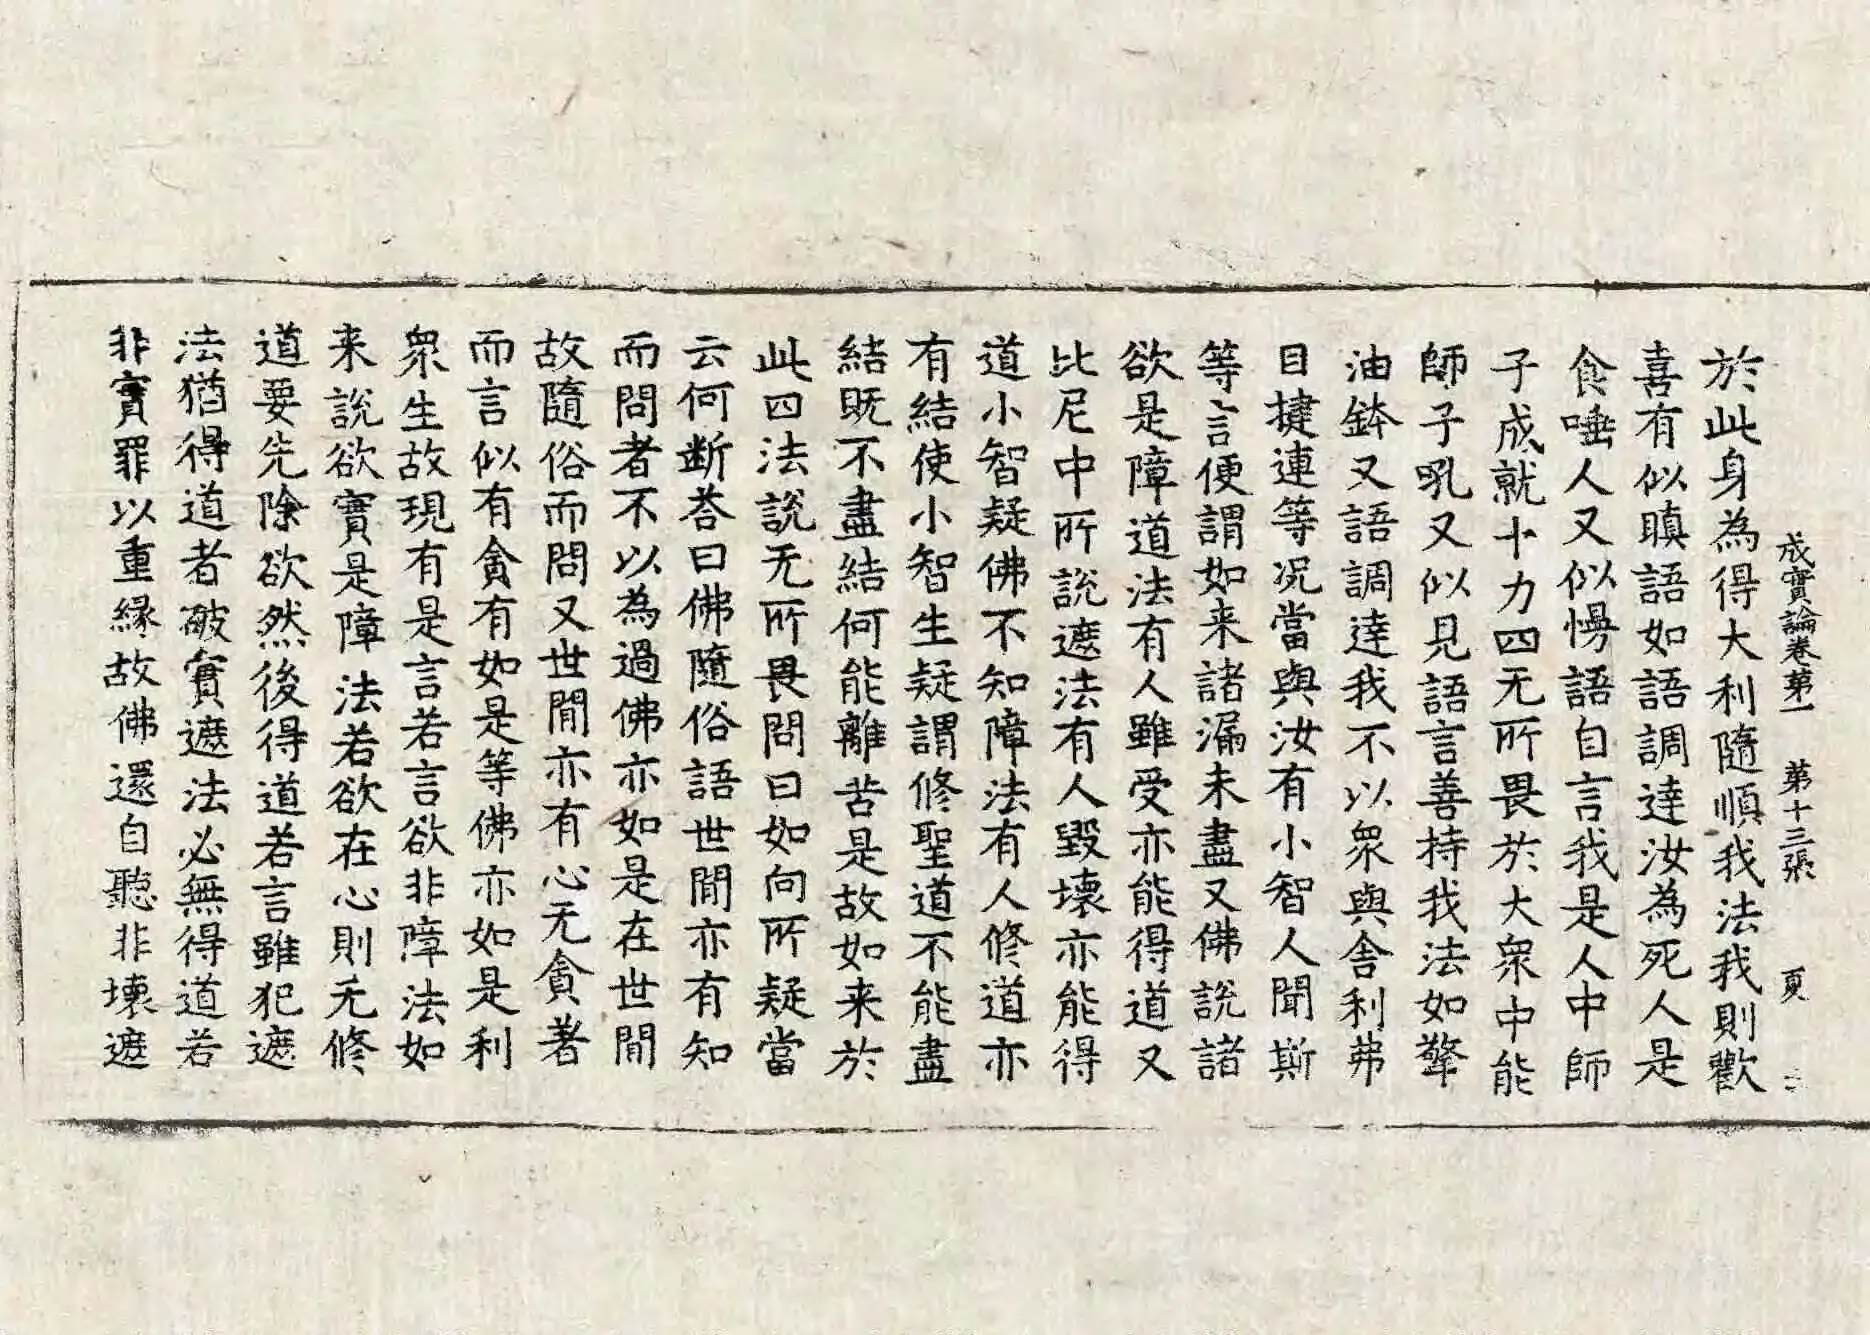 成實論卷第一 第十三張 頁
於此身為得大利隨順我法我則歡
喜有似瞋語如語調達汝為死人是
食唾人又似慢語自言我是人中師
子成就十力四无所畏於大衆中能
師子吼又似見語言善持我法如擎
油鉢又語調達我不以衆與舍利弗
目揵連等況當與汝有小智人聞斯
等言便謂如来諸漏未盡又佛說諸
欲是障道法有人雖受亦能得道又
比尼中所說遮法有人毀壞亦能得
道小智疑佛不知障法有人修道亦
有結使小智生疑謂修聖道不能盡
結既不盡結何能離苦是故如来於
此四法說无所畏問曰如向所疑當
云何断荅曰佛隨俗語世間亦有知
而問者不以為過佛亦如是在世間
故隨俗而問又世間亦有心无貪著
而言似有貪有如是等佛亦如是利
衆生故現有是言若言欲非障法如
来說欲實是障法若欲在心則无修
道要先除欲然後得道若言雖犯遮
法猶得道者破實遮法必無得道若
非實罪以重縁故佛還自聽非壞遮